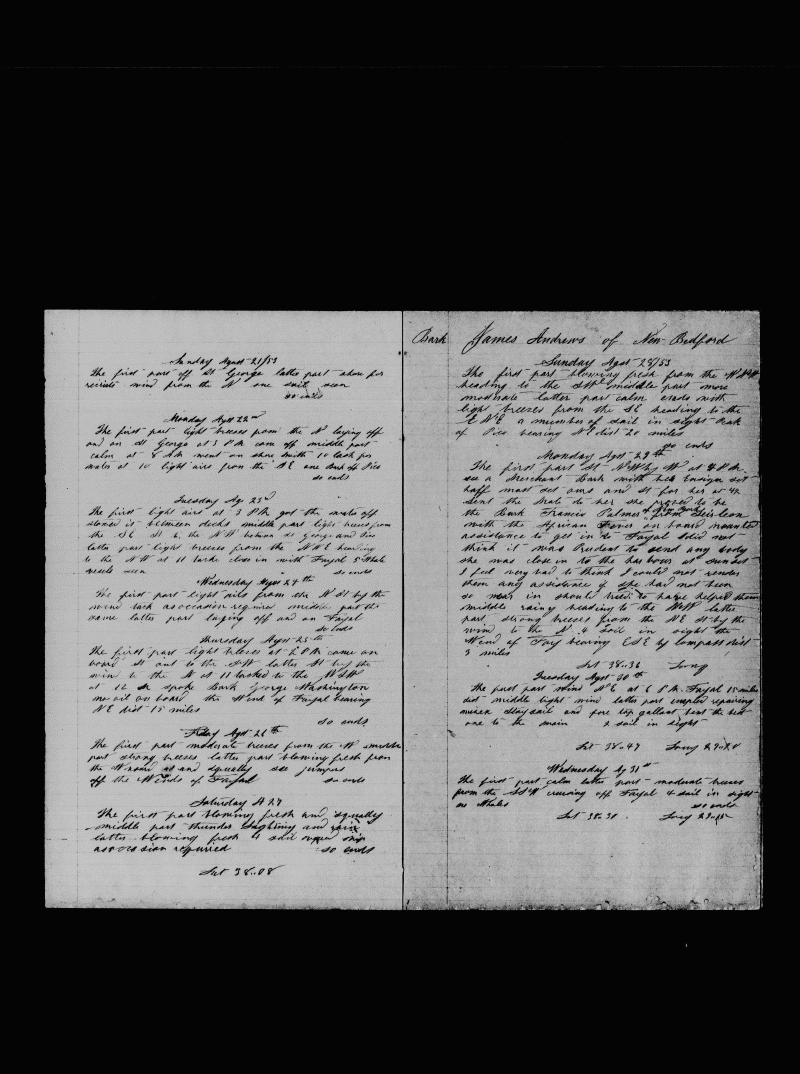 Sunday Agust 21/53
The first part off St George latter part
wind from the N one sail seen
so ends
Monday Agst 22nd
The first part light breeses from the N laying off
and on St George at 3 P.M. cam off middle part
calm at 8 A.M. went on shore with 10 for
water at 10 light airs from the SE one Bark off Pico
so ends
Tuesday Ag 23d
The first light airs at 3 P.M. got the water off
stowed it between decks middle part light breeses from
the SE St to the NW between St George and Pico
latter part light breeses from the NNE heading
to the NW at 11 close in with Fayal 5
seen so ends
Wednesday Agst 24th
The first part light airs from the N St by the
wind as occasion required middle part the
same latter part laying off and on Fayal
so ends
Thursday Agst 25th
The first part light breeses at 2 P.M. came on
board St out to the SW latter St by the
win to the N at 11 tacked to the WSW
at 12 M spoke Bark George Washington
no oil on board the West end of Fayal bearing
NE dist 15 miles
so ends
Friday Agst 26th
The first part moderate breeses from the W middle
part strong breeses latter part blowing fresh from
the W and squally see jumpers
off the W ends of Fayal so ends
Saturday A 27
The first part blowing fresh and squally
middle part thunder lightning and rain
latter blowing fresh 4 sail ship
as occasion required so ends
Lat 38..08
Bark James Andrews of New Bedford
Sunday Agst 28/53
The first part blowing fresh from the WNW
heading to the SW middle part more
moderate latter part calm ends with
light breeses from the SE heading to the
ENE a number of sail in sight Peak
of Pico bearing N dist 20 miles
so ends
Monday Agst 29th
The first part St NW by W at 4 P.M.
see a Merchant Bark with her Ensign set
haff mast set ours and St for her at
sent the Mate to her she proved to be
the Bark Francis Palmer of New York from Seirleon
with the African Fever on board wanted
assistance to get in to Fayal I did not
think it was Prudent to send any body
she was close in to the harbour at sunset
I feel very bad to think I could not render
them any assistance if she had not been
so near in should tried to have helped them
middle rainy heading to the NW latter
part strong breeses from the NE St by the
wind to the N 4 sail in sight the
West end of Fay bearing ESE by compass dist
3 miles
Lat 38..36 Long
Tuesday Agst 30th
The first part wind NE at 6 P.M. Fayal 15 miles
dist middle light wind latter part repairing
mizen staysail and fore top gallant bent the best
one to the main 2 sail in sight
Lat 38..47 Long 29..
Wednesday Ag 31st
The first part calm latter part moderate breeses
from the SSW cruising off Fayal 4 sail in sight
no Whales so ends
Lat 38..30 Long 29..15